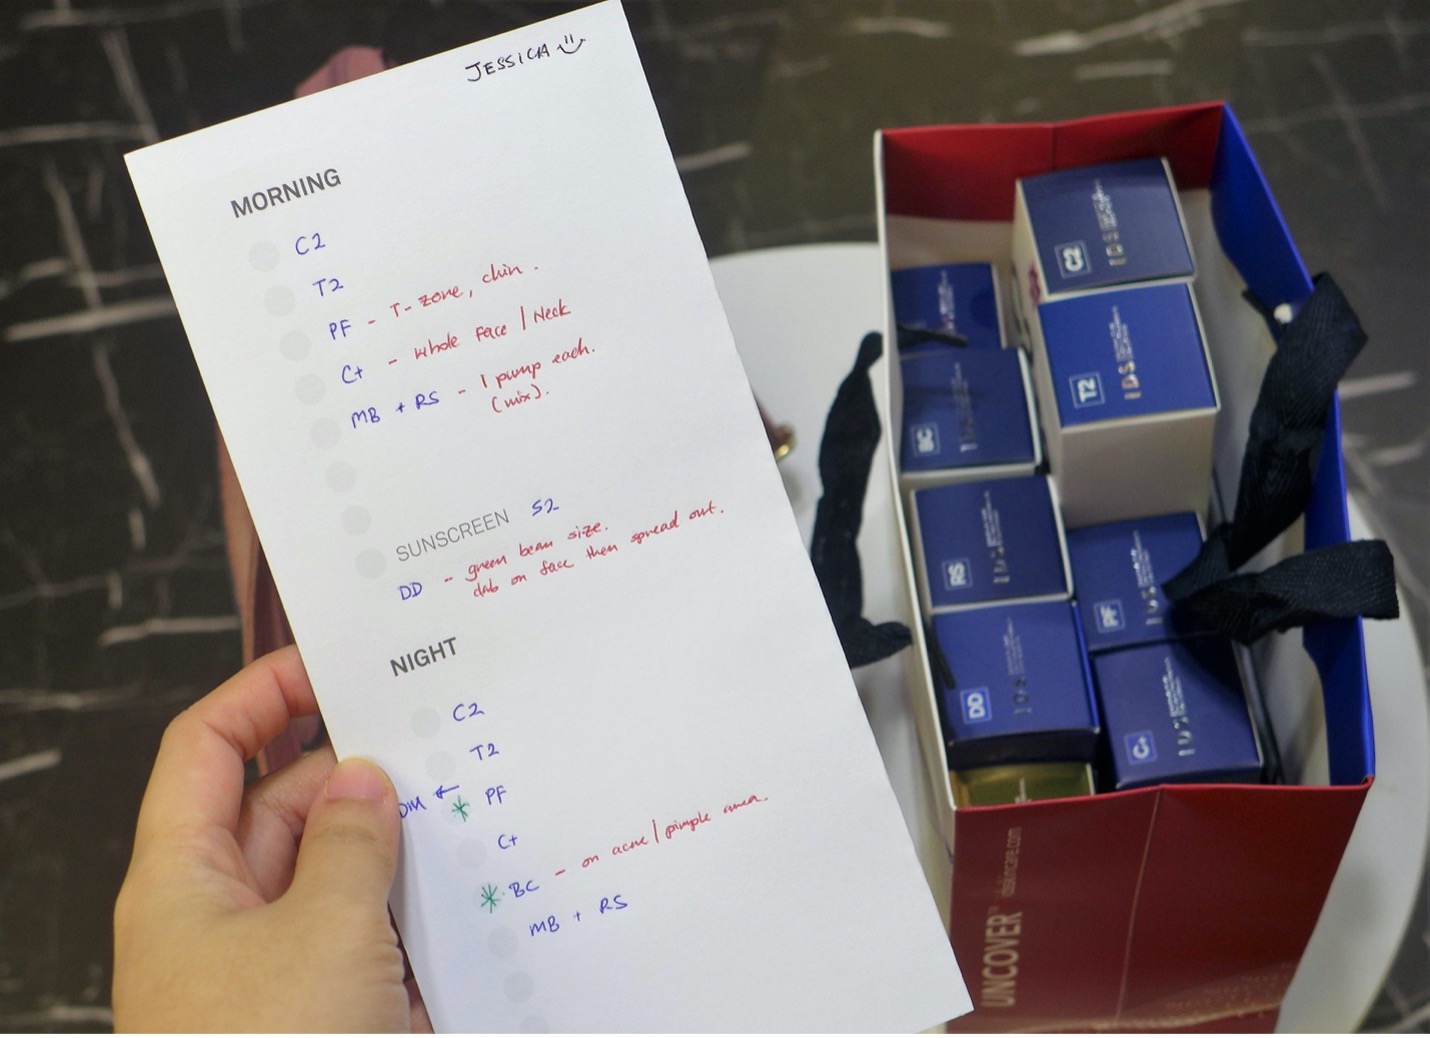 JESSICA
MORNING
C2
T2
PF - T-zone, chin.
C+ - Whole Face / Neck
MB + RS - 1 pump each.
(mix).
SUNSCREEN S2
DD - green bean size.
dab on face then spread out.
NIGHT
C2
T2
← * PF
C+
* BC - on acne / pimple area.
MB + RS
C2
IDS
T2
IDS
BC
IDS
RS
IDS
PF
IDS
DD
IDS
C+
IDS
UNCOVER™